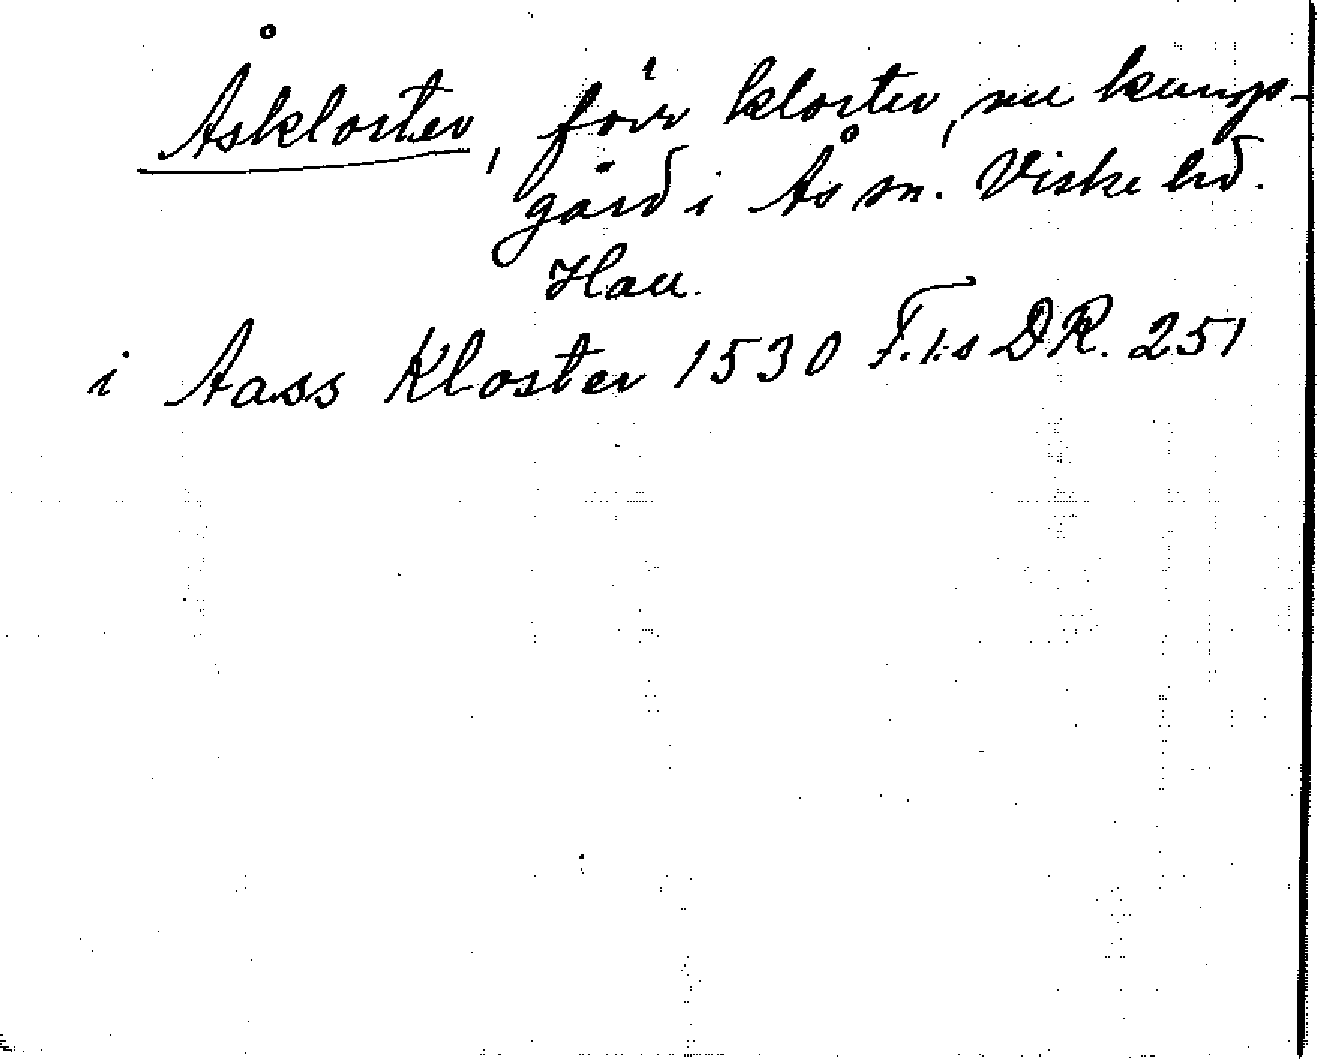 Åskloster, förr kloster, nu kungs-
gård i Ås sn. Viske hd.
Hall.
i Aass Kloster 1530 F.I:s DR. 251